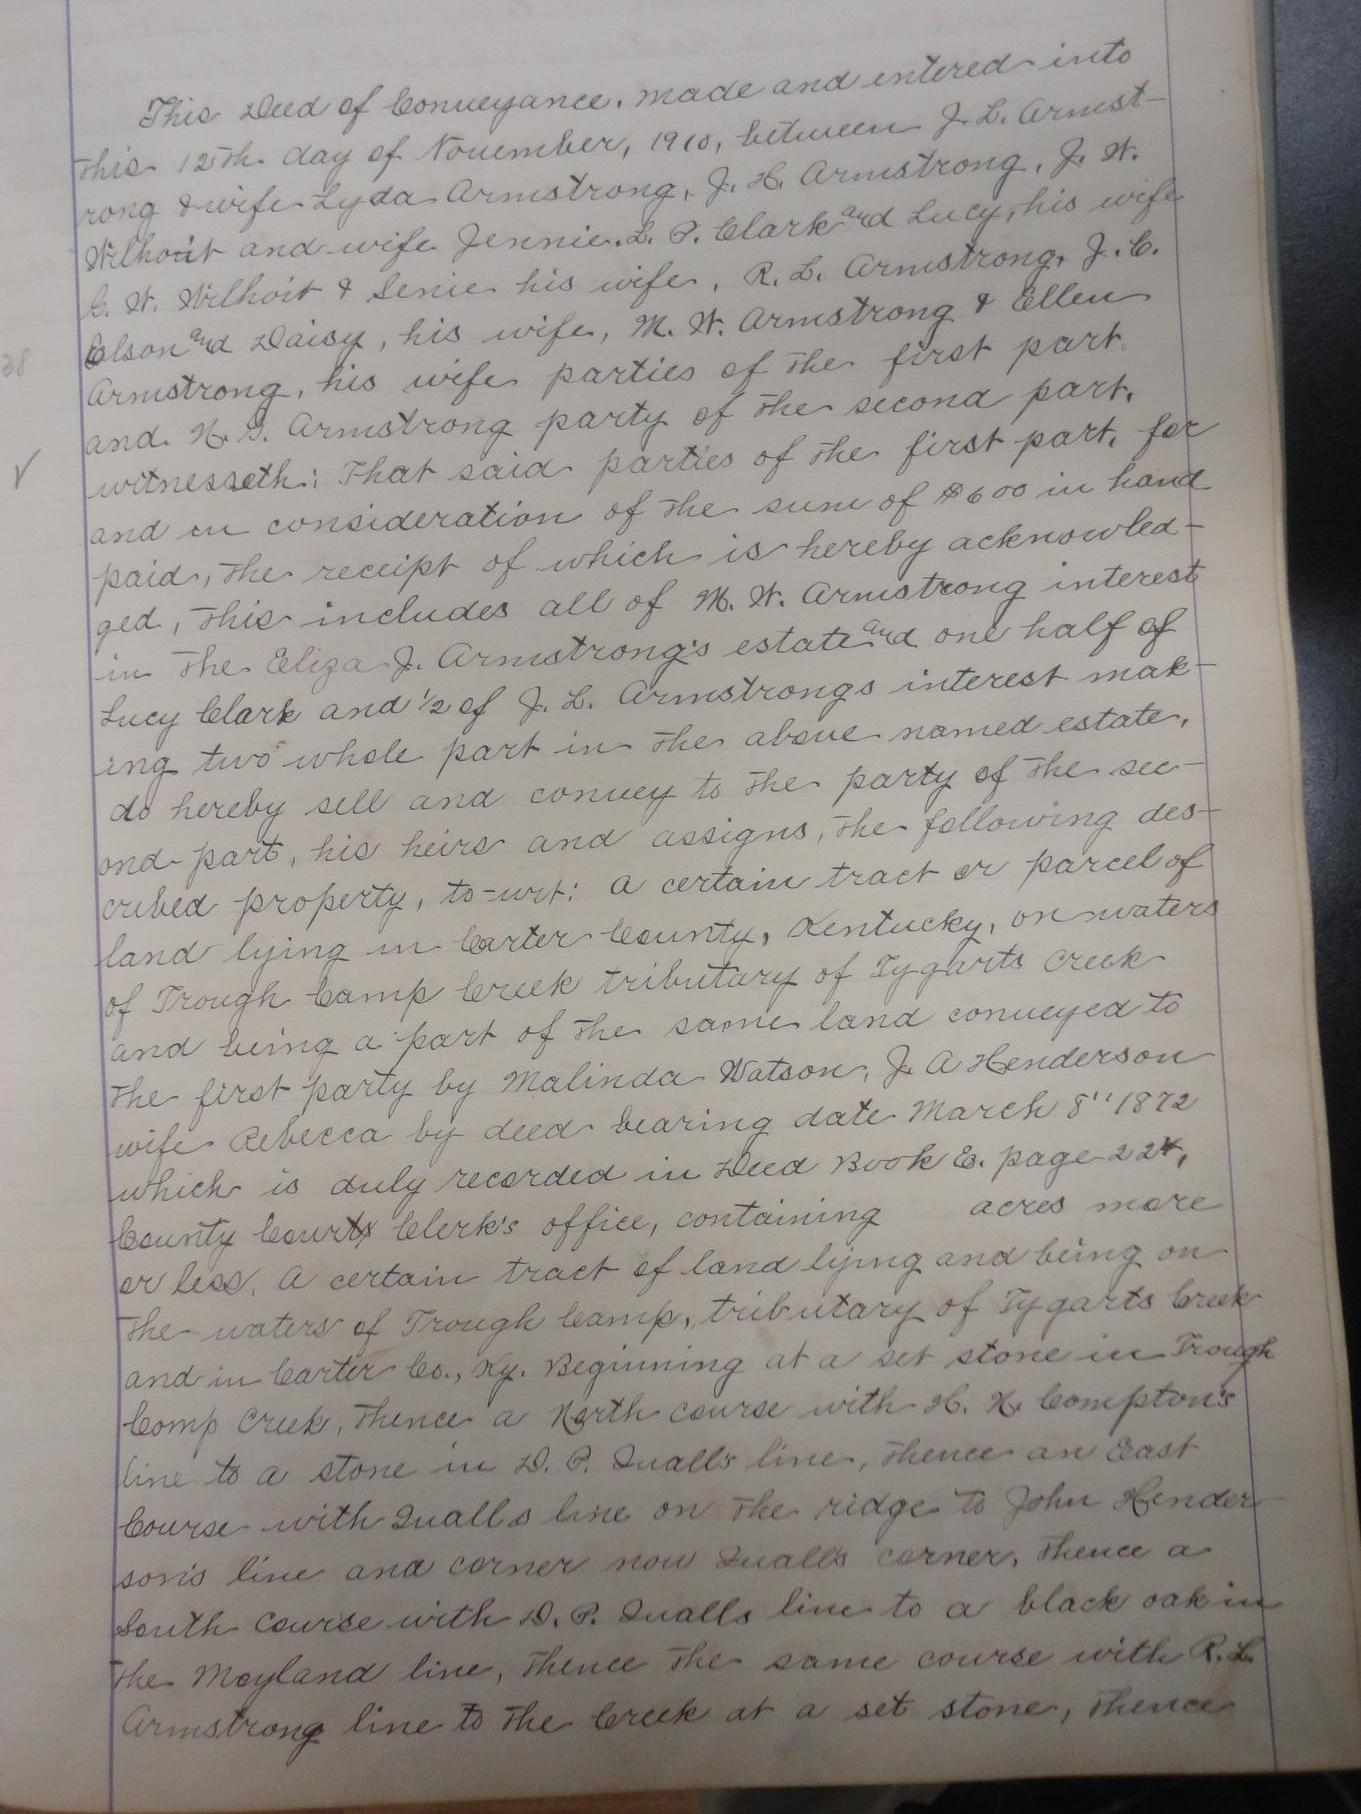 This Deed of Conveyance, made and entered into
this 12th day of November, 1910, between J. L. Armst-
rong & wife Lyda Armstrong, J. H. Armstrong, J. W.
Wilhoit and wife Jennie, L. P. Clark and Lucy, his wife
G. W. Wilhoit & Senie his wife, R. L. Armstrong, J. C.
Elson and Daisy, his wife, M. W. Armstrong & Ellen
38
Armstrong, his wife parties of the first part
and. N. G. Armstrong party of the second part,
witnesseth: That said parties of the first part, for
and in consideration of the sum of $600 in hand
paid, the receipt of which is hereby acknowled-
ged, this includes all of M. W. Armstrong interest
in the Eliza J. Armstrong's estate and one half of
Lucy Clark and 1/2 of J. L. Armstrongs interest mak-
ing two whole part in the above named estate,
do hereby sell and convey to the party of the sec-
ond part, his heirs and assigns, the following des-
cribed property, to-wit: A certain tract or parcel of
land lying in Carter County, Kentucky, on waters
of Trough Camp Creek tributary of Tygarts Creek
and being a part of the same land conveyed to
the first party by Malinda Watson, J. A Henderson
wife Rebecca by deed bearing date March 8" 1872
which is duly recorded in Deed Book E. page 224,
County Courts Clerk's office, containing acres more
or less. A certain tract of land lying and being on
the waters of Trough Camp, tributary of Tygarts Creek
and in Carter Co., Ky. Beginning at a set stone in Trough
Camp Creek, thence a North course with H. H. Compton's
line to a stone in D. P. Quall's line, thence an East
Course with Qualls line on the ridge to John Hender-
son's line and corner now Qualls corner, thence a
South course with D. P. Qualls line to a black oak in
the Moyland line, thence the same course with R. L
Armstrong line to the Creek at a set stone, thence